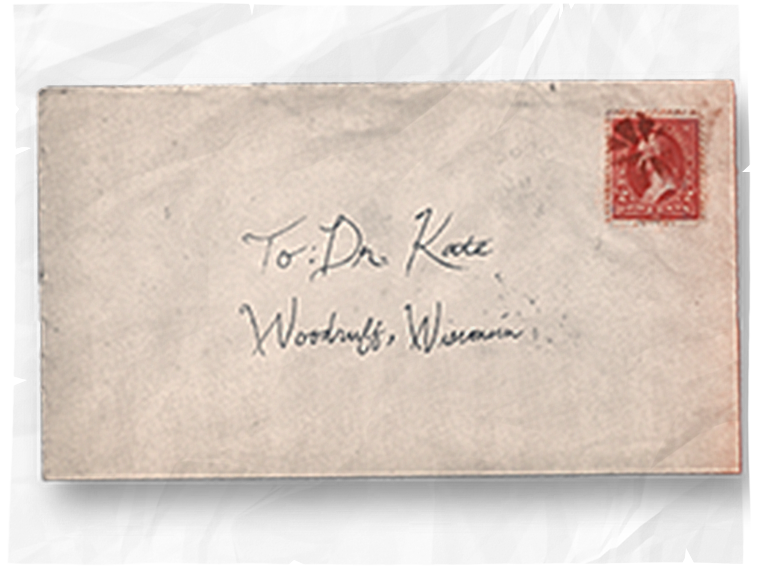 To: Dr. Kate
Woodruff, Wisconsin